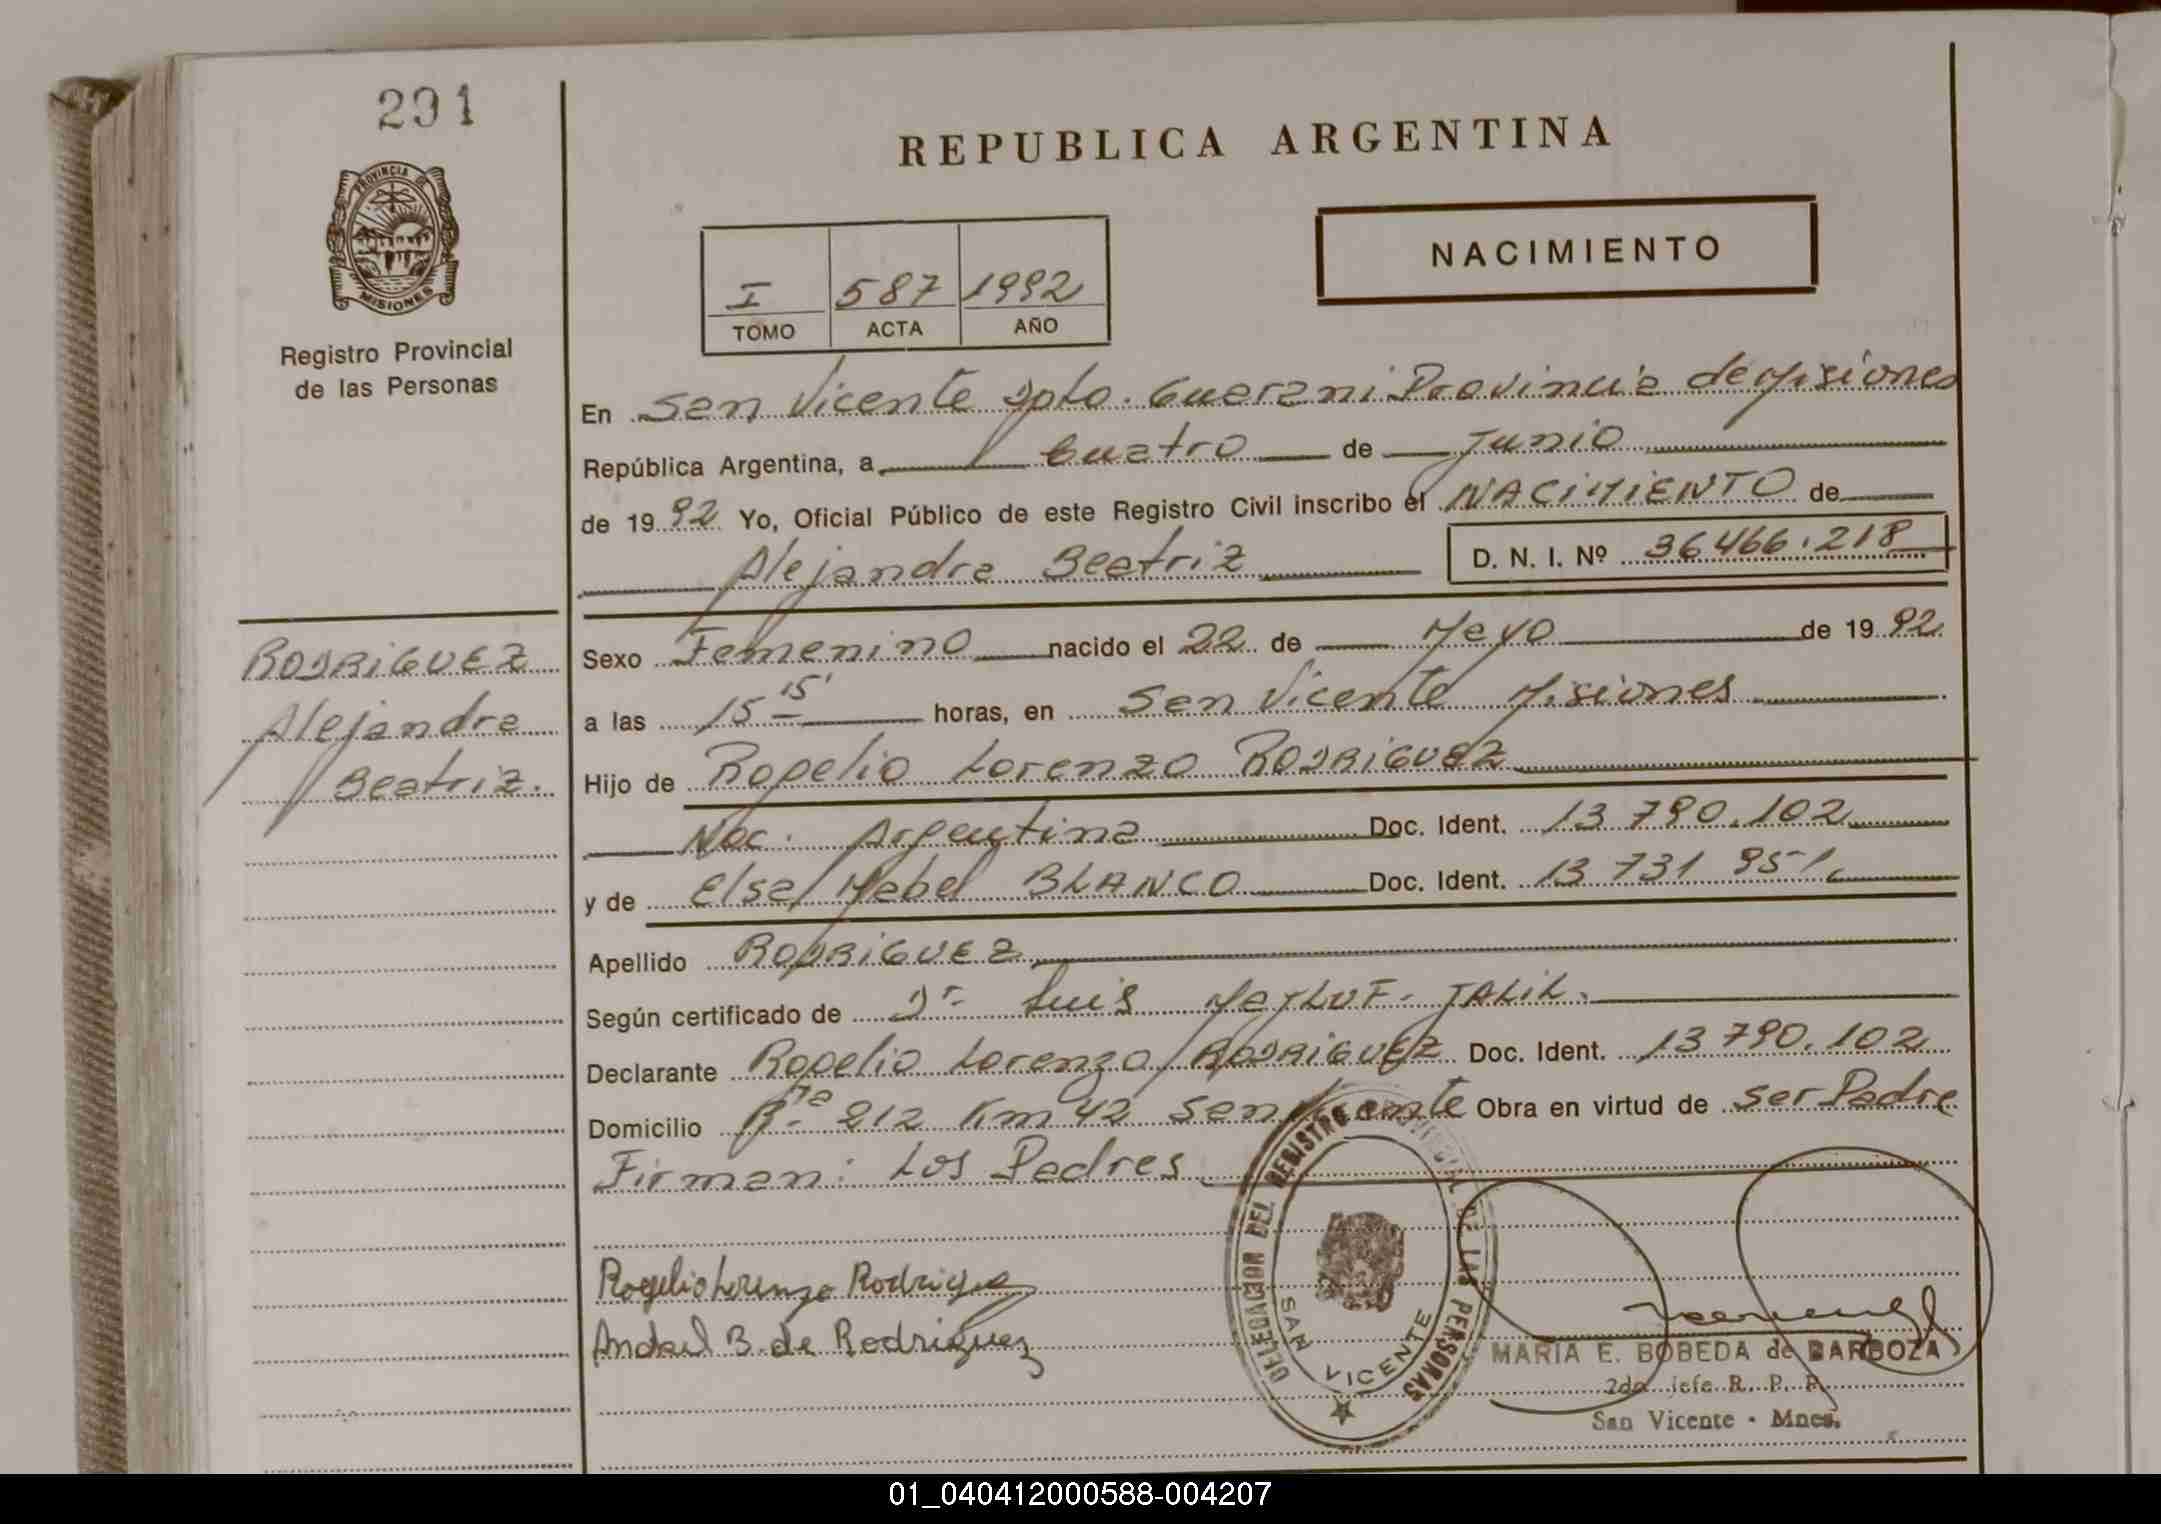 291
REPUBLICA ARGENTINA
PROVINCIA DE
MISIONES
Registro Provincial
de las Personas
NACIMIENTO
I 587 1992
TOMO ACTA AÑO
En San Vicente Dpto. Guarani Provincia de Misiones
República Argentina, a Cuatro de Junio
de 1992 Yo, Oficial Público de este Registro Civil inscribo el NACIMIENTO de
Alejandra Beatriz D. N. I. Nº 36466.218
RODRIGUEZ
Alejandra
Beatriz.
Sexo Femenino nacido el 22 de Mayo de 1992
a las 15 15' horas, en San Vicente Misiones
Hijo de Rogelio Lorenzo RODRIGUEZ
Nac. Argentina Doc. Ident. 13 790.102
y de Elsa Mabel BLANCO Doc. Ident. 13 731 951
Apellido RODRIGUEZ
Según certificado de Dr Luis JALIL.
Declarante Rogelio Lorenzo RODRIGUEZ Doc. Ident. 13 790.102
Domicilio Rta 212 Km 42 San Vicente Obra en virtud de ser Padre
Firman: Los Padres
Rogelio Lorenzo Rodrigue
B. de Rodriguez
DELEGACION DEL REGISTRO PROVINCIAL DE LAS PERSONAS
SAN VICENTE
MARIA E. BOBEDA de BARBOZA
2do. jefe R. P. P.
San Vicente - Mnes.
01_040412000588-004207